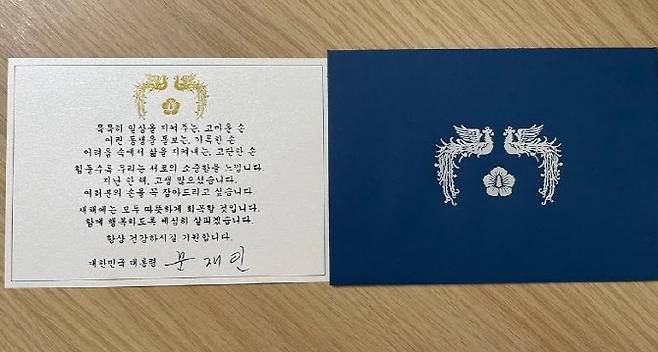 묵묵히 일상을 지켜주는, 고마운 손
어린 동생을 돌보는, 기특한 손
어려움 속에서 삶을 지켜내는, 고단한 손
힘들수록 우리는 서로의 소중함을 느낍니다.
지난 한 해, 고생 많으셨습니다.
여러분의 손을 꼭 잡아드리고 싶습니다.
새해에는 모두 따뜻하게 회복할 것입니다.
함께 행복하도록 세심히 살피겠습니다.
항상 건강하시길 기원합니다.
대한민국 대통령 문재인